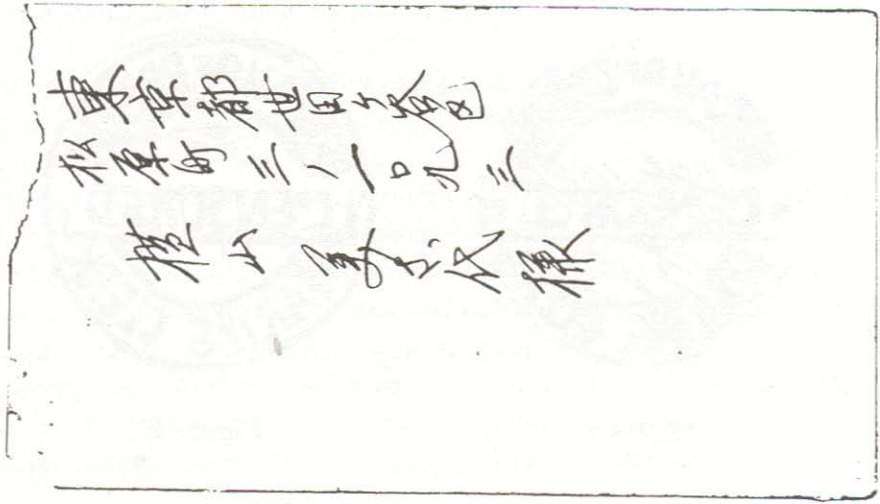 東京都世田ヶ谷区
松原町三ノ一〇九三
山 美 代 様